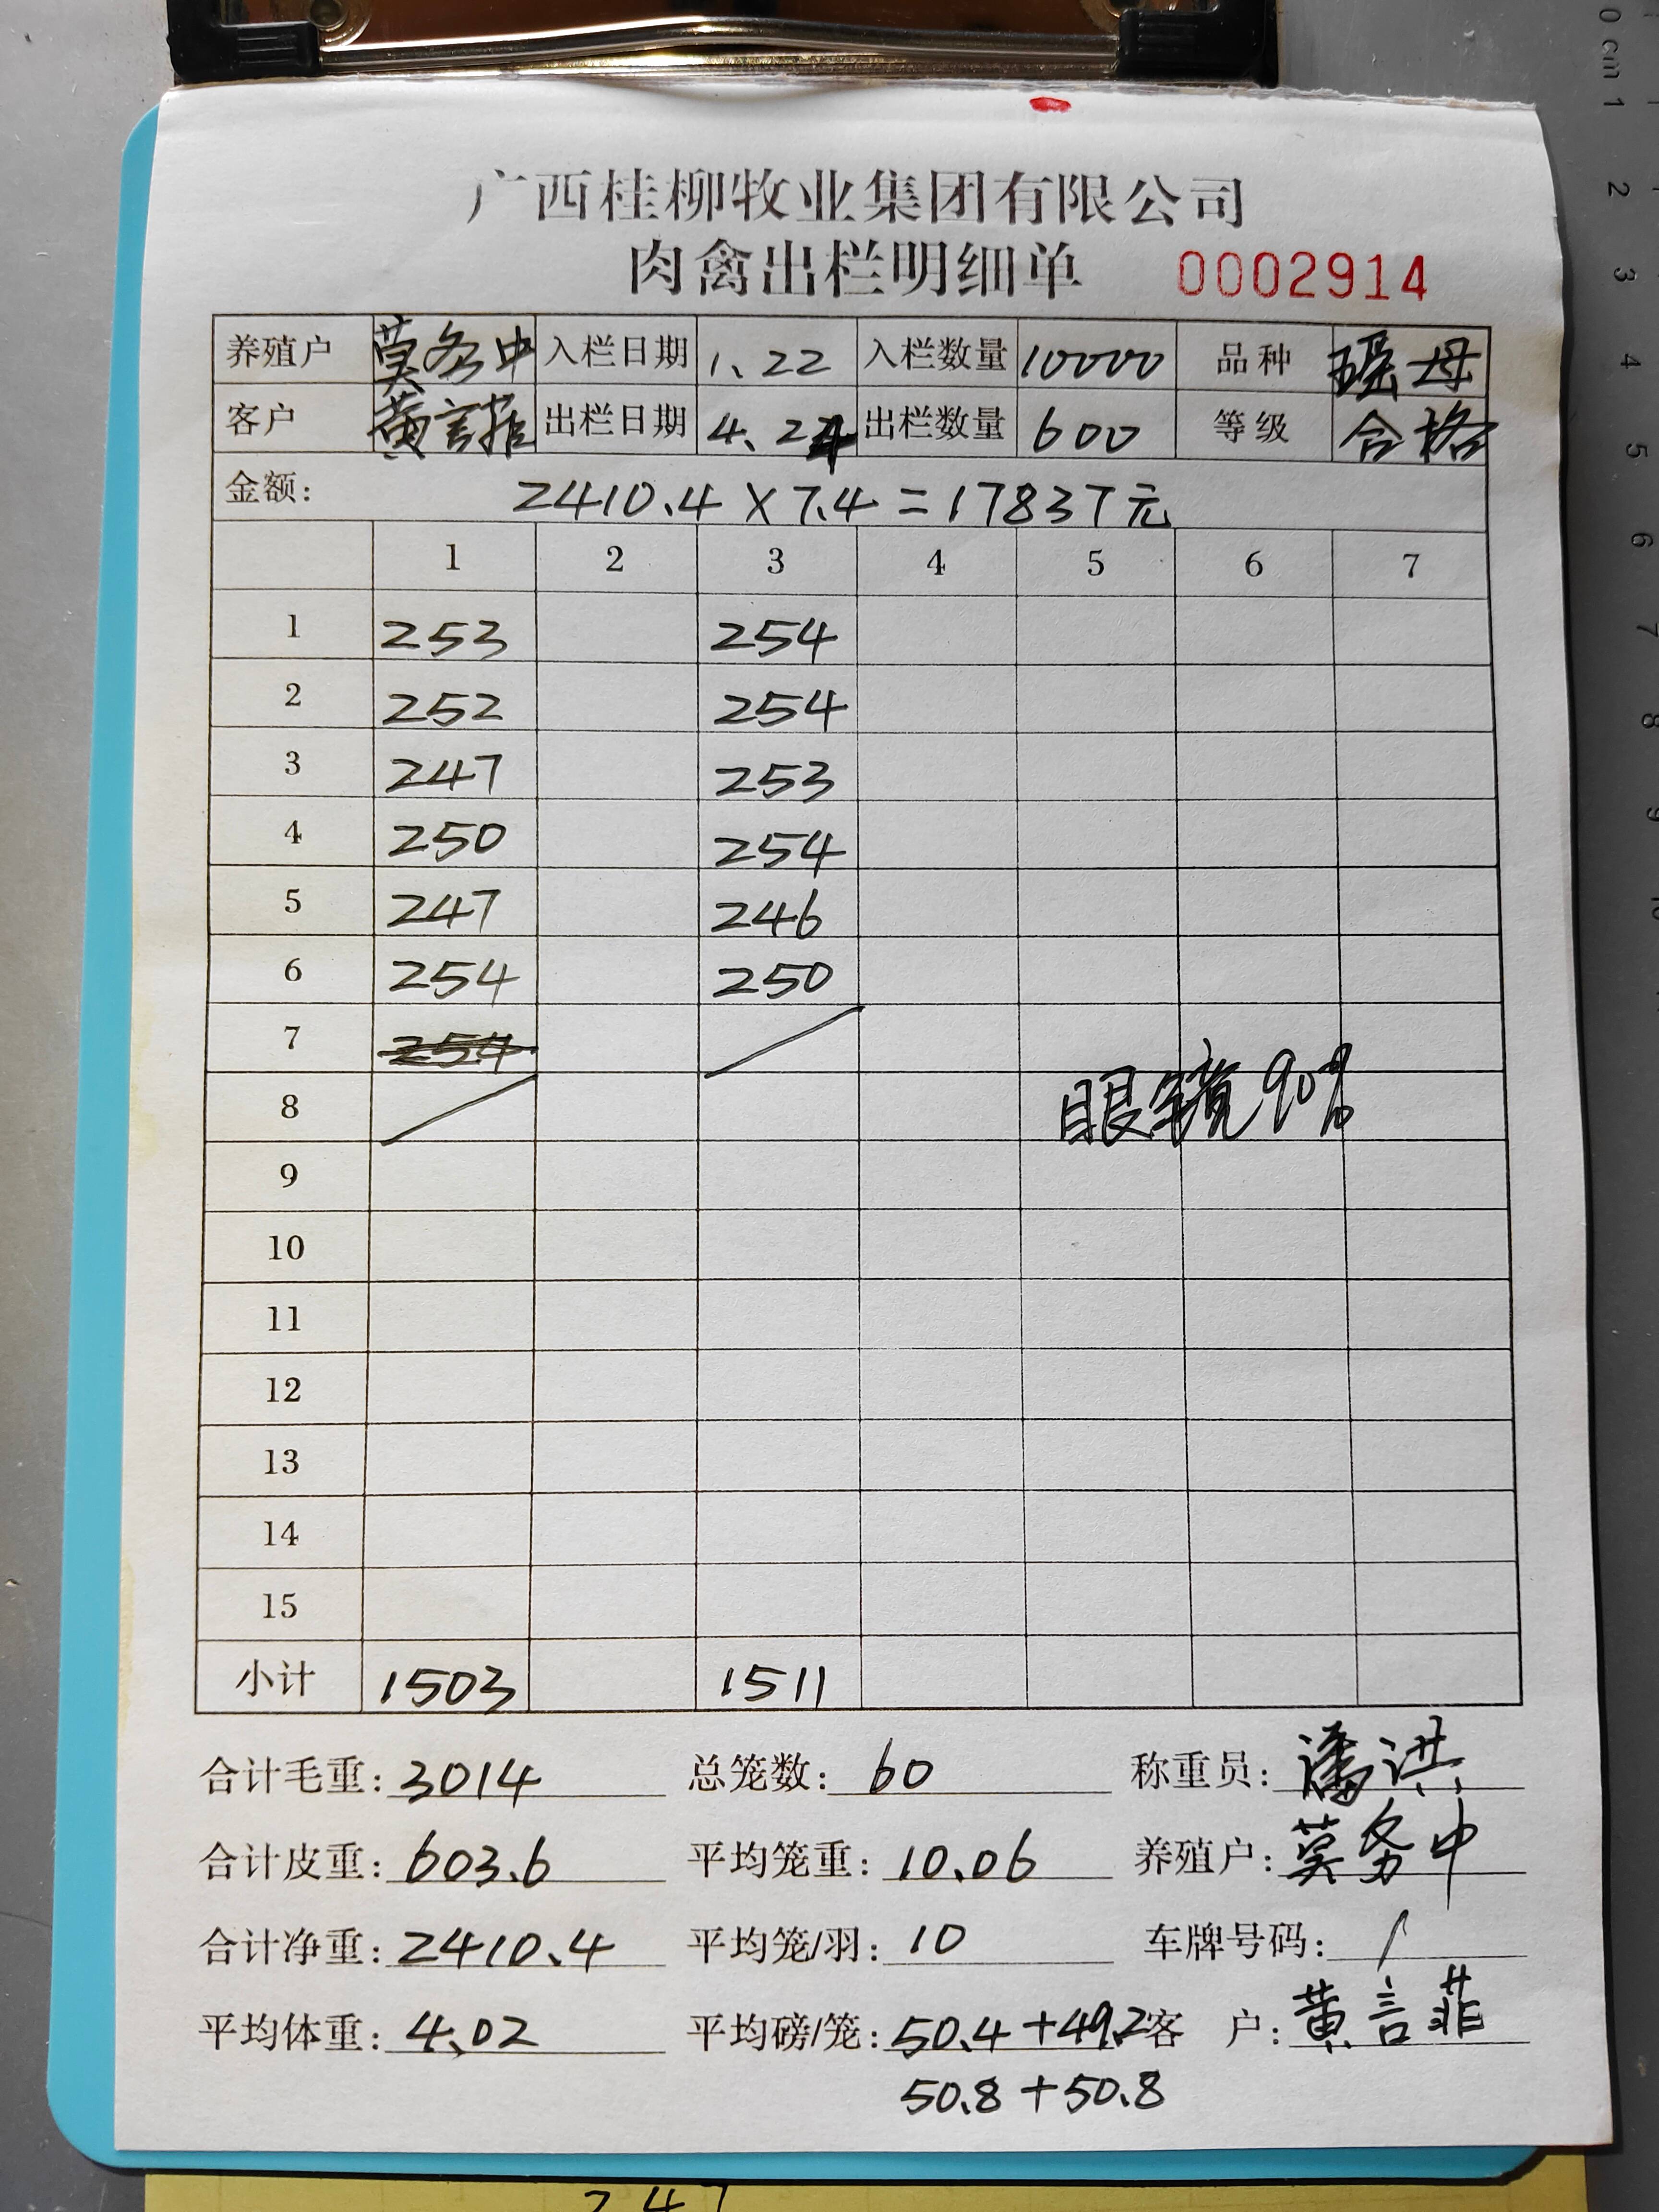 广西桂柳牧业集团有限公司
肉禽出栏明细单 0002914
养殖户 莫务中 入栏日期 1.22 入栏数量 10000 品种 瑶母
客户 黄言菲 出栏日期 4.24 出栏数量 600 等级 合格
金额: 2410.4×7.4=17837元
1 2 3 4 5 6 7
1 253 254
2 252 254
3 247 253
4 250 254
5 247 246
6 254 250
7 254
8 眼镜90%
9
10
11
12
13
14
15
小计 1503 1511
合计毛重: 3014 总笼数: 60 称重员: 潘洪
合计皮重: 603.6 平均笼重: 10.06 养殖户: 莫务中
合计净重: 2410.4 平均笼/羽: 10 车牌号码: /
平均体重: 4.02 平均磅/笼: 50.4+49.2 客 户: 黄言菲
50.8+50.8
247
0 cm 1 2 3 4 5 6 7 8 9 10